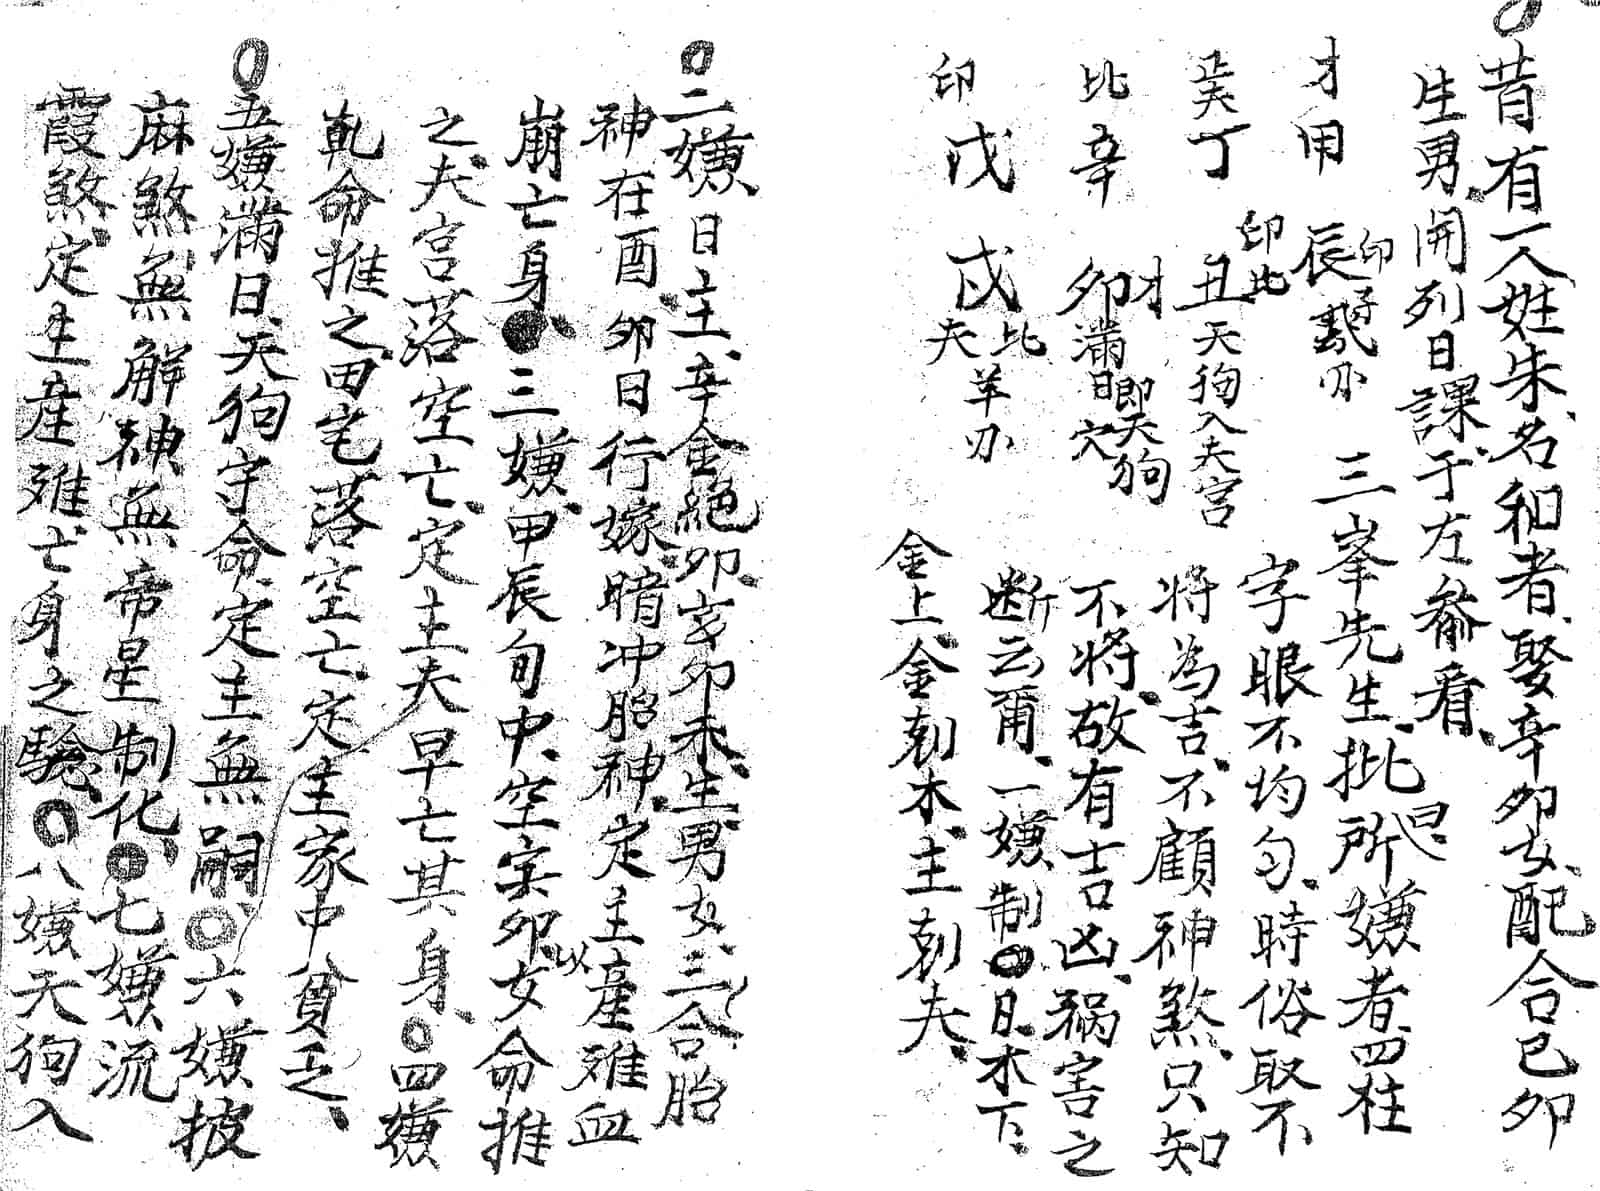 昔有一人姓朱名和者娶辛卯女配合已卯
生男開列日課于左裔看
才甲　辰印
三峯先生批曰所嫌者四柱
字眼不均勻時俗取不
正夫丁　丑印比天狗入夫宮
將為吉不顧神煞只知
比辛　卯才滿日即天狗穴
不將故有吉凶禍害之
印戊　戌比夫羊刃
斷云爾一嫌制日木下
金上金剋木主剋夫
二嫌日主辛金絕卯亥卯未生男女三合胎
神在酉卯日行嫁暗冲胎神定主產难血
崩亡身三嫌甲辰旬中空寅卯以女命推
之夫宮落空亡定主夫早亡其身四嫌
乾命推之田宅落空亡定主家中貧乏
五嫌滿日天狗守命定主無嗣六嫌披
麻煞無解神無帝星制化七嫌流
霞煞定主產难亡身之驗八嫌天狗入